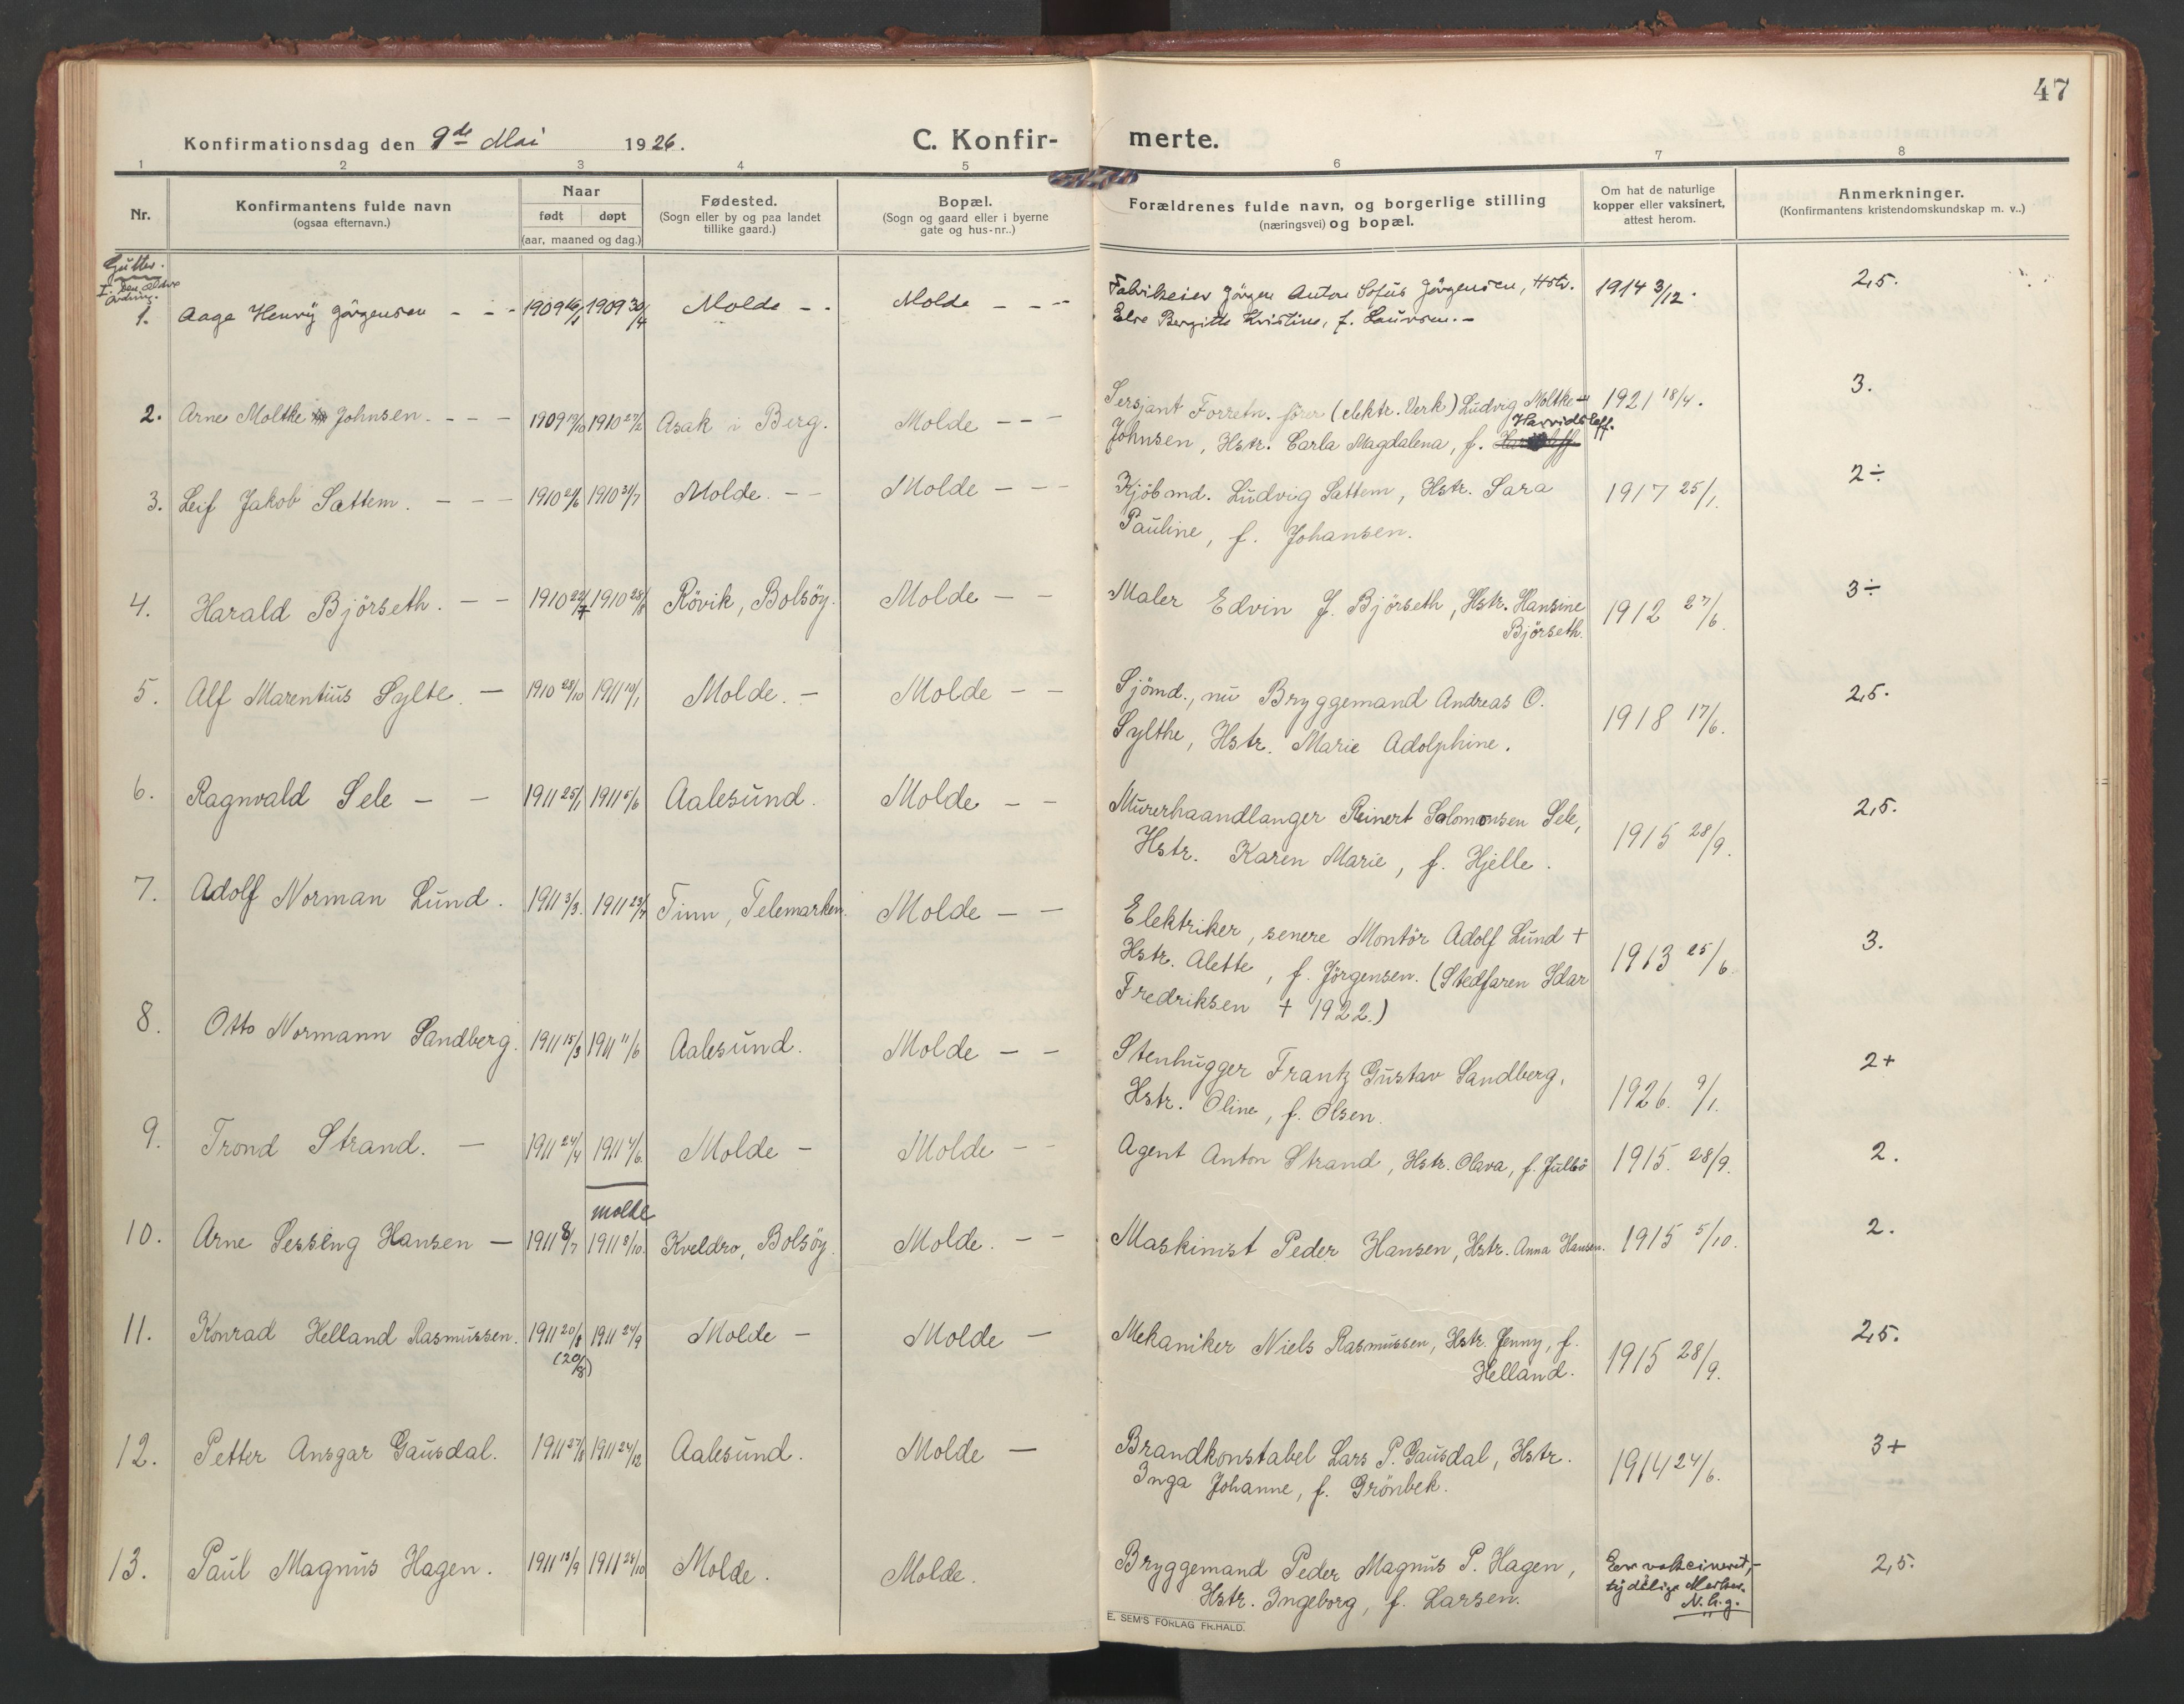 47
Konfirmationsdag den 9de Mai 1926.
C. Konfir- merte.
1 2 3 4 5 6 7 8
Nr.
Konfirmantens fulde navn
(ogsaa efternavn.)
Naar
født døpt
(aar, maaned og dag.)
Fødested.
(Sogn eller by og paa landet
tillike gaard.)
Bopæl.
(Sogn og gaard eller i byerne
gate og hus-nr..)
Forældrenes fulde navn, og borgerlige stilling
(næringsvei) og bopæl.
Om hat de naturlige
kopper eller vaksinert,
attest herom.
Anmerkninger.
(Konfirmantens kristendomskundskap m. v..)
Gutter.
I. den ældre
ordning.
1. Aage Henry Jörgensen - - - 1909 1909 30/4 Molde - - Molde - - - Fabrikeier Jörgen Anton Sofus Jörgensen, Hstr. 1914 3/12. 2,5.
Else Bergitte Kristine, f. Laursen. -
2. Arne Moltke Johnsen. - - - 1909 1910 27/2 Asak i Berg. Molde - - Sersjant Forretn. fører (elektr. Verk) Ludvig Moltke- 1921 18/4. 3.
Harridsleff.
Johnsen, Hstr. Carla Magdalena, f.
3. Leif Jakob Sættem. - - - 1910 1910 31/7 Molde. - - Molde - - - Kjöbmd. Ludvig Sættem, Hstr. Sara 1917 25/1. 2÷
Pauline, f. Johansen.
4. Harald Björseth. - - 1910 22/7 1910 28/8 Rövik, Bolsöy. Molde - - Maler Edvin J. Björseth, Hstr. Hansine 1912 27/6. 3÷
Björseth.
5. Alf Marentius Sylte. - 1910 28/10 1911 10/1 Molde. - Molde - - Sjömd., nu Bryggemand Andreas O. 1918 17/6. 2,5.
Sylthe, Hstr. Marie Adolphine.
6. Ragnvald Sele - - 1911 25/1 1911 5/6 Aalesund. Molde - - Murerhaandlanger Reinert Salomonsen Sele, 1915 28/9. 2,5.
Hstr. Karen Marie, f. Hjelle.
7. Adolf Norman Lund. 1911 3/3. 1911 23/7 Tinn, Telemarken. Molde - - Elektriker, senere Montör Adolf Lund + 1913 25/6. 3.
Hstr. Alette, f. Jörgensen. (Stedfaren Idar
Fredriksen + 1922.)
8. Otto Normann Sandberg. 1911 15/3 1911 11/6 Aalesund. Molde - - Stenhugger Frantz Gustav Sandberg, 1926. 9/1. 2+
Hstr. Oline, f. Olsen.
9. Trond Strand. - 1911 24/4 1911 4/6. Molde - Molde - - Agent Anton Strand, Hstr. Olava, f. Julbö 1915. 28/9. 2.
Molde
10. Arne Sessing Hansen - 1911 8/7 1911 8/10. Kveldro, Bolsöy. Molde. - - Maskinist Peder Hansen, Hstr. Anna Hansen. 1915 5/10. 2.
11. Konrad Helland Rasmussen. 1911 20/8 1911 24/9 Molde - Molde - Mekaniker Niels Rasmussen, Hstr. Jenny, f. 1915 28/9. 2,5.
(20/8) Helland.
12. Petter Ansgar Gausdal. 1911 27/8 1911 24/12 Aalesund. Molde - Brandkonstabel Lars P. Gausdal, Hstr. 1914 24/6. 3+
Inga Johanne, f. Grönbek.
13. Paul Magnus Hagen. 1911 13/9 1911 28/10 Molde. Molde. Bryggemand Peder Magnus P. Hagen, Er vakcineret,- 2,5.
Hstr. Ingeborg, f. Larsen. tydelige Merker.
N. G. g.
E. SEM'S FORLAG FR.HALD.